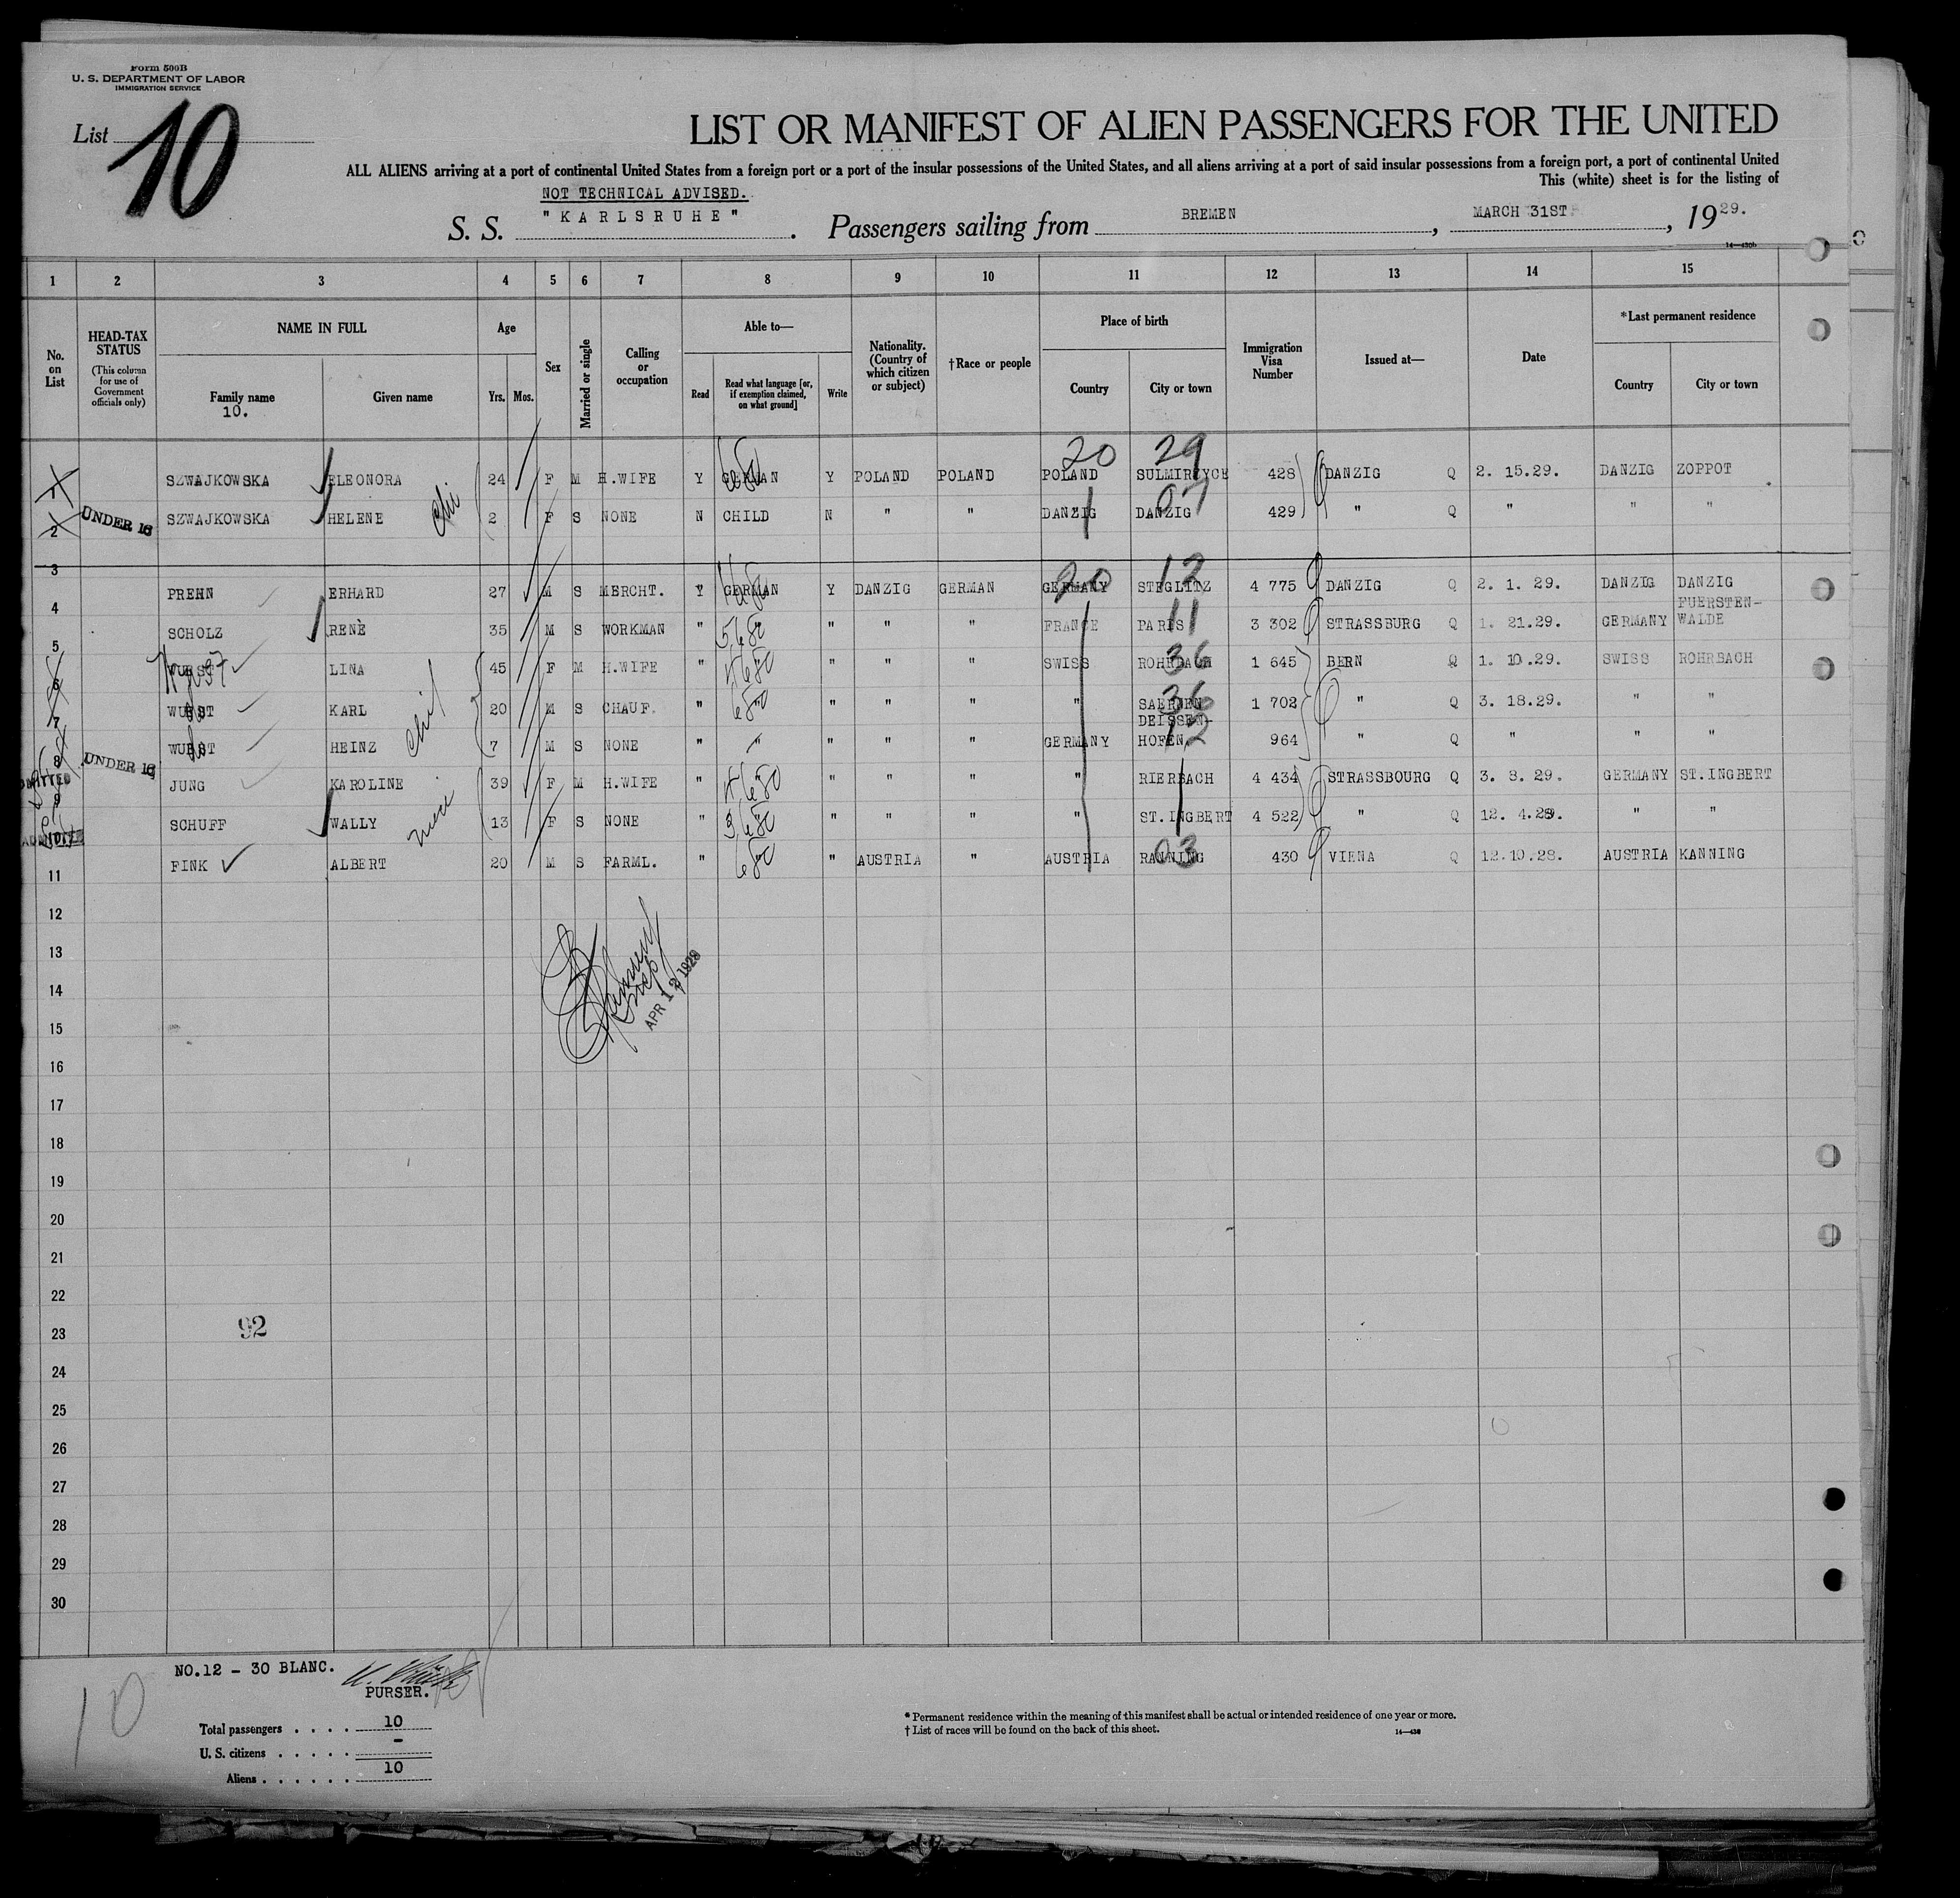 Form 500B
U. S. DEPARTMENT OF LABOR
IMMIGRATION SERVICE
List 10
LIST OR MANIFEST OF ALIEN PASSENGERS FOR THE UNITED
ALL ALIENS arriving at a port of continental United States from a foreign port or a port of the insular possessions of the United States, and all aliens arriving at a port of said insular possessions from a foreign port, a port of continental United
This (white) sheet is for the listing of
NOT TECHNICAL ADVISED.
S. S. "KARLSRUHE". Passengers sailing from BREMEN, MARCH 31ST, 1929.
14—430b
1 2 3 4 5 6 7 8 9 10 11 12 13 14 15
No. on List
HEAD-TAX STATUS (This column for use of Government officials only)
NAME IN FULL
Family name
10.
Given name
Age
Yrs. Mos.
Sex
Married or single
Calling or occupation
Able to—
Read
Read what language [or, if exemption claimed, on what ground]
Write
Nationality. (Country of which citizen or subject)
†Race or people
Place of birth
Country
City or town
Immigration Visa Number
Issued at—
Date
*Last permanent residence
Country
City or town
20 29
1 SZWAJKOWSKA ELEONORA 24 F M H.WIFE Y GERMAN Y POLAND POLAND POLAND SULMIRZYCE 428 DANZIG Q 2. 15.29. DANZIG ZOPPOT
2 UNDER 16 SZWAJKOWSKA HELENE 2 F S NONE N CHILD N " " DANZIG DANZIG 07 429 " Q " " "
3
4 PREHN ERHARD 27 M S MERCHT. Y GERMAN Y DANZIG GERMAN GERMANY 20 STEGLITZ 12 4 775 DANZIG Q 2. 1. 29. DANZIG DANZIG
5 SCHOLZ RENÈ 35 M S WORKMAN " 5680 " " " FRANCE PARIS 11 3 302 STRASSBURG Q 1. 21.29. GERMANY FUERSTEN-WALDE
6 WURST LINA 45 F M H.WIFE " 4680 " " " SWISS ROHRBACH 36 1 645 BERN Q 1. 10.29. SWISS ROHRBACH
7 WURST KARL 20 M S CHAUF. " 680 " " " " SAERNEN 36 1 702 " Q 3. 18.29. " "
8 WURST HEINZ 7 M S NONE " " " " " GERMANY DEISSEN-HOFEN. 12 964 " Q " " "
9 UNDER 16 JUNG KAROLINE 39 F M H.WIFE " 4680 " " " " RIERBACH 4 434 STRASSBOURG Q 3. 8. 29. GERMANY ST.INGBERT
ADMITTED
10 SCHUFF WALLY 13 F S NONE " 3680 " " " " ST.INGBERT 4 522 " Q 12. 4.28. " "
ADMITTED
11 FINK ALBERT 20 M S FARML. " 680 " AUSTRIA " AUSTRIA RANNING 03 430 VIENA Q 12.10.28. AUSTRIA KANNING
12
13
APR 12 1929
14
15
16
17
18
19
20
21
22
23 92
24
25
26
27
28
29
30
NO.12 - 30 BLANC.
PURSER.
10
Total passengers . . . . 10
U. S. citizens . . . . . -
Aliens . . . . . . 10
* Permanent residence within the meaning of this manifest shall be actual or intended residence of one year or more.
† List of races will be found on the back of this sheet.
14—430